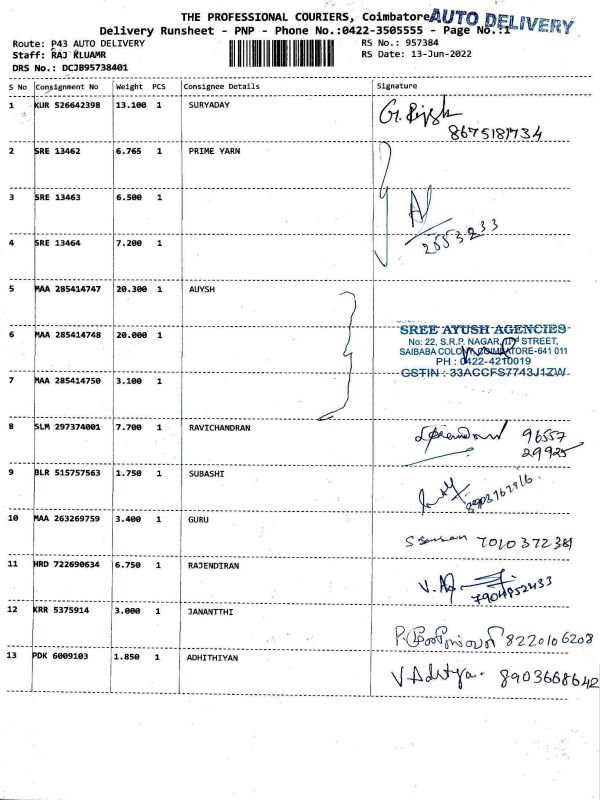 THE PROFESSIONAL COURIERS, Coimbatore
AUTO DELIVERY
Delivery Runsheet - PNP - Phone No.:0422-3505555 - Page No.:1
Route: P43 AUTO DELIVERY RS No.: 957384
Staff: RAJ KLUAMR RS Date: 13-Jun-2022
DRS No.: DCJB95738401
S No Consignment No Weight PCS Consignee Details Signature
1 KUR 526642398 13.100 1 SURYADAY
8675181734
2 SRE 13462 6.765 1 PRIME YARN
3 SRE 13463 6.500 1
2553233
4 SRE 13464 7.200 1
5 MAA 285414747 20.300 1 AUYSH
SREE AYUSH AGENCIES
6 MAA 285414748 20.000 1
No: 22, S.R.P. NAGAR, IInd STREET,
SAIBABA COLONY, COIMBATORE-641 011
PH : 0422-4210019
GSTIN : 33ACCFS7743J1ZW
7 MAA 285414750 3.100 1
8 SLM 297374001 7.700 1 RAVICHANDRAN
96557
29925
9 BLR 515757563 1.750 1 SUBASHI
10 MAA 263269759 3.400 1 GURU
7010372381
11 HRD 722690634 6.750 1 RAJENDIRAN
7904852433
12 KRR 5375914 3.000 1 JANANTTHI
8220106208
13 PDK 6009103 1.850 1 ADHITHIYAN
V Aditya. 8903668642